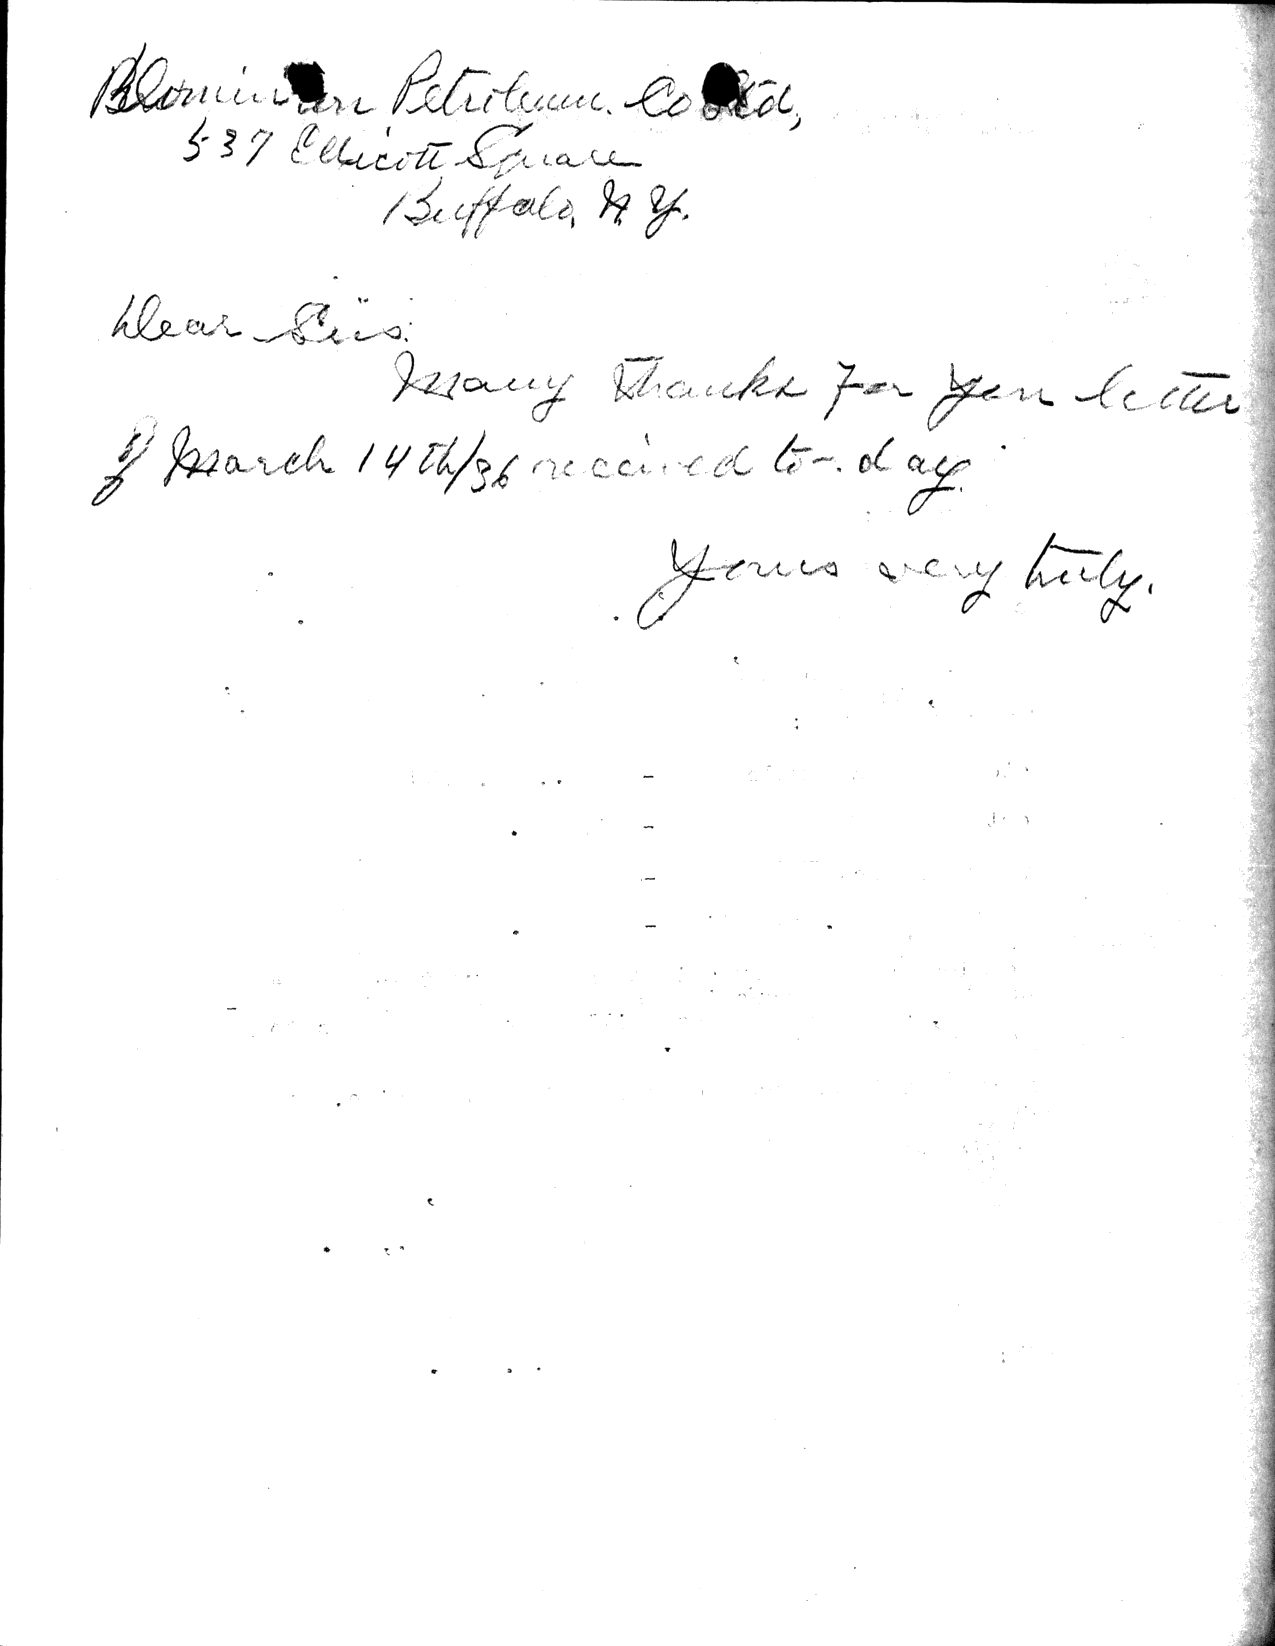 Dominion Petroleum Co Ltd,
537 Ellicott Square
Buffalo, N.Y.
Dear Sirs:
Many thanks for your letter
of March 14th/36 received to-day.
Yours very truly.